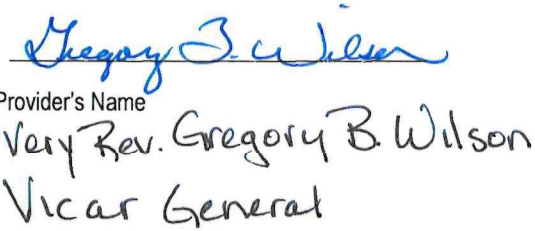 Gregory B. Wilson
Provider's Name
Very Rev. Gregory B. Wilson
Vicar General